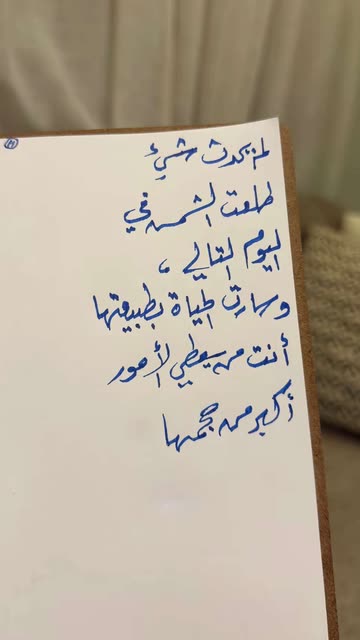 لم يحدث شيء
طلعت الشمس في
اليوم التالي ،
وسارت الحياة بطبيعتها
أنت من يعطي الأمور
أكبر من حجمها